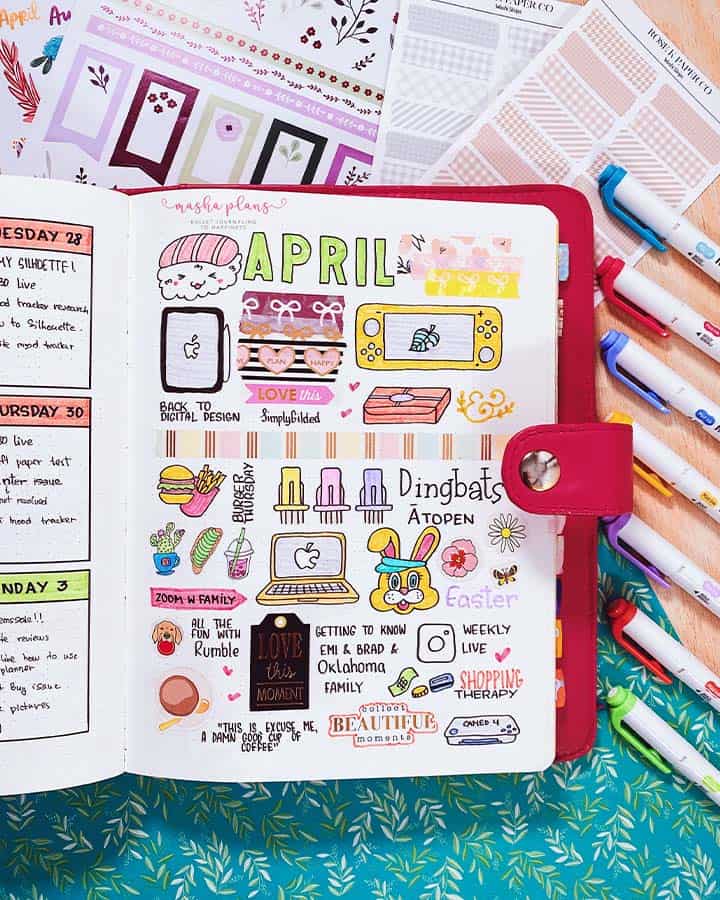 April
ROSE K PAPER CO
Washi Strips
ROSE K PAPER CO
Washi Strips
ESDAY 28
MY SILHDETTE!
30 live
mood tracker
THURSDAY 30
30 live
paper test
issue
resolved
mood tracker
NDAY 3
reviews
live how to use
planner
Buy issue.
pictures
masha plans
BULLET JOURNALING
TO HAPPINESS
APRIL
PLAN
HAPPY
LOVE this
BACK TO
DIGITAL DESIGN
Simplygilded
BURGER
THURSDAY
Dingbats
ĀTOPEN
ZOOM W FAMILY
Easter
ALL THE
FUN WITH
Rumble
LOVE
this
MOMENT
GETTING TO KNOW
EMI & BRAD &
Oklahoma
FAMILY
WEEKLY
LIVE
SHOPPING
THERAPY
"THIS IS EXCUSE ME,
A DAMN GOOD CUP OF
COFFEE"
collect
BEAUTIFUL
moments
CAMEO 4